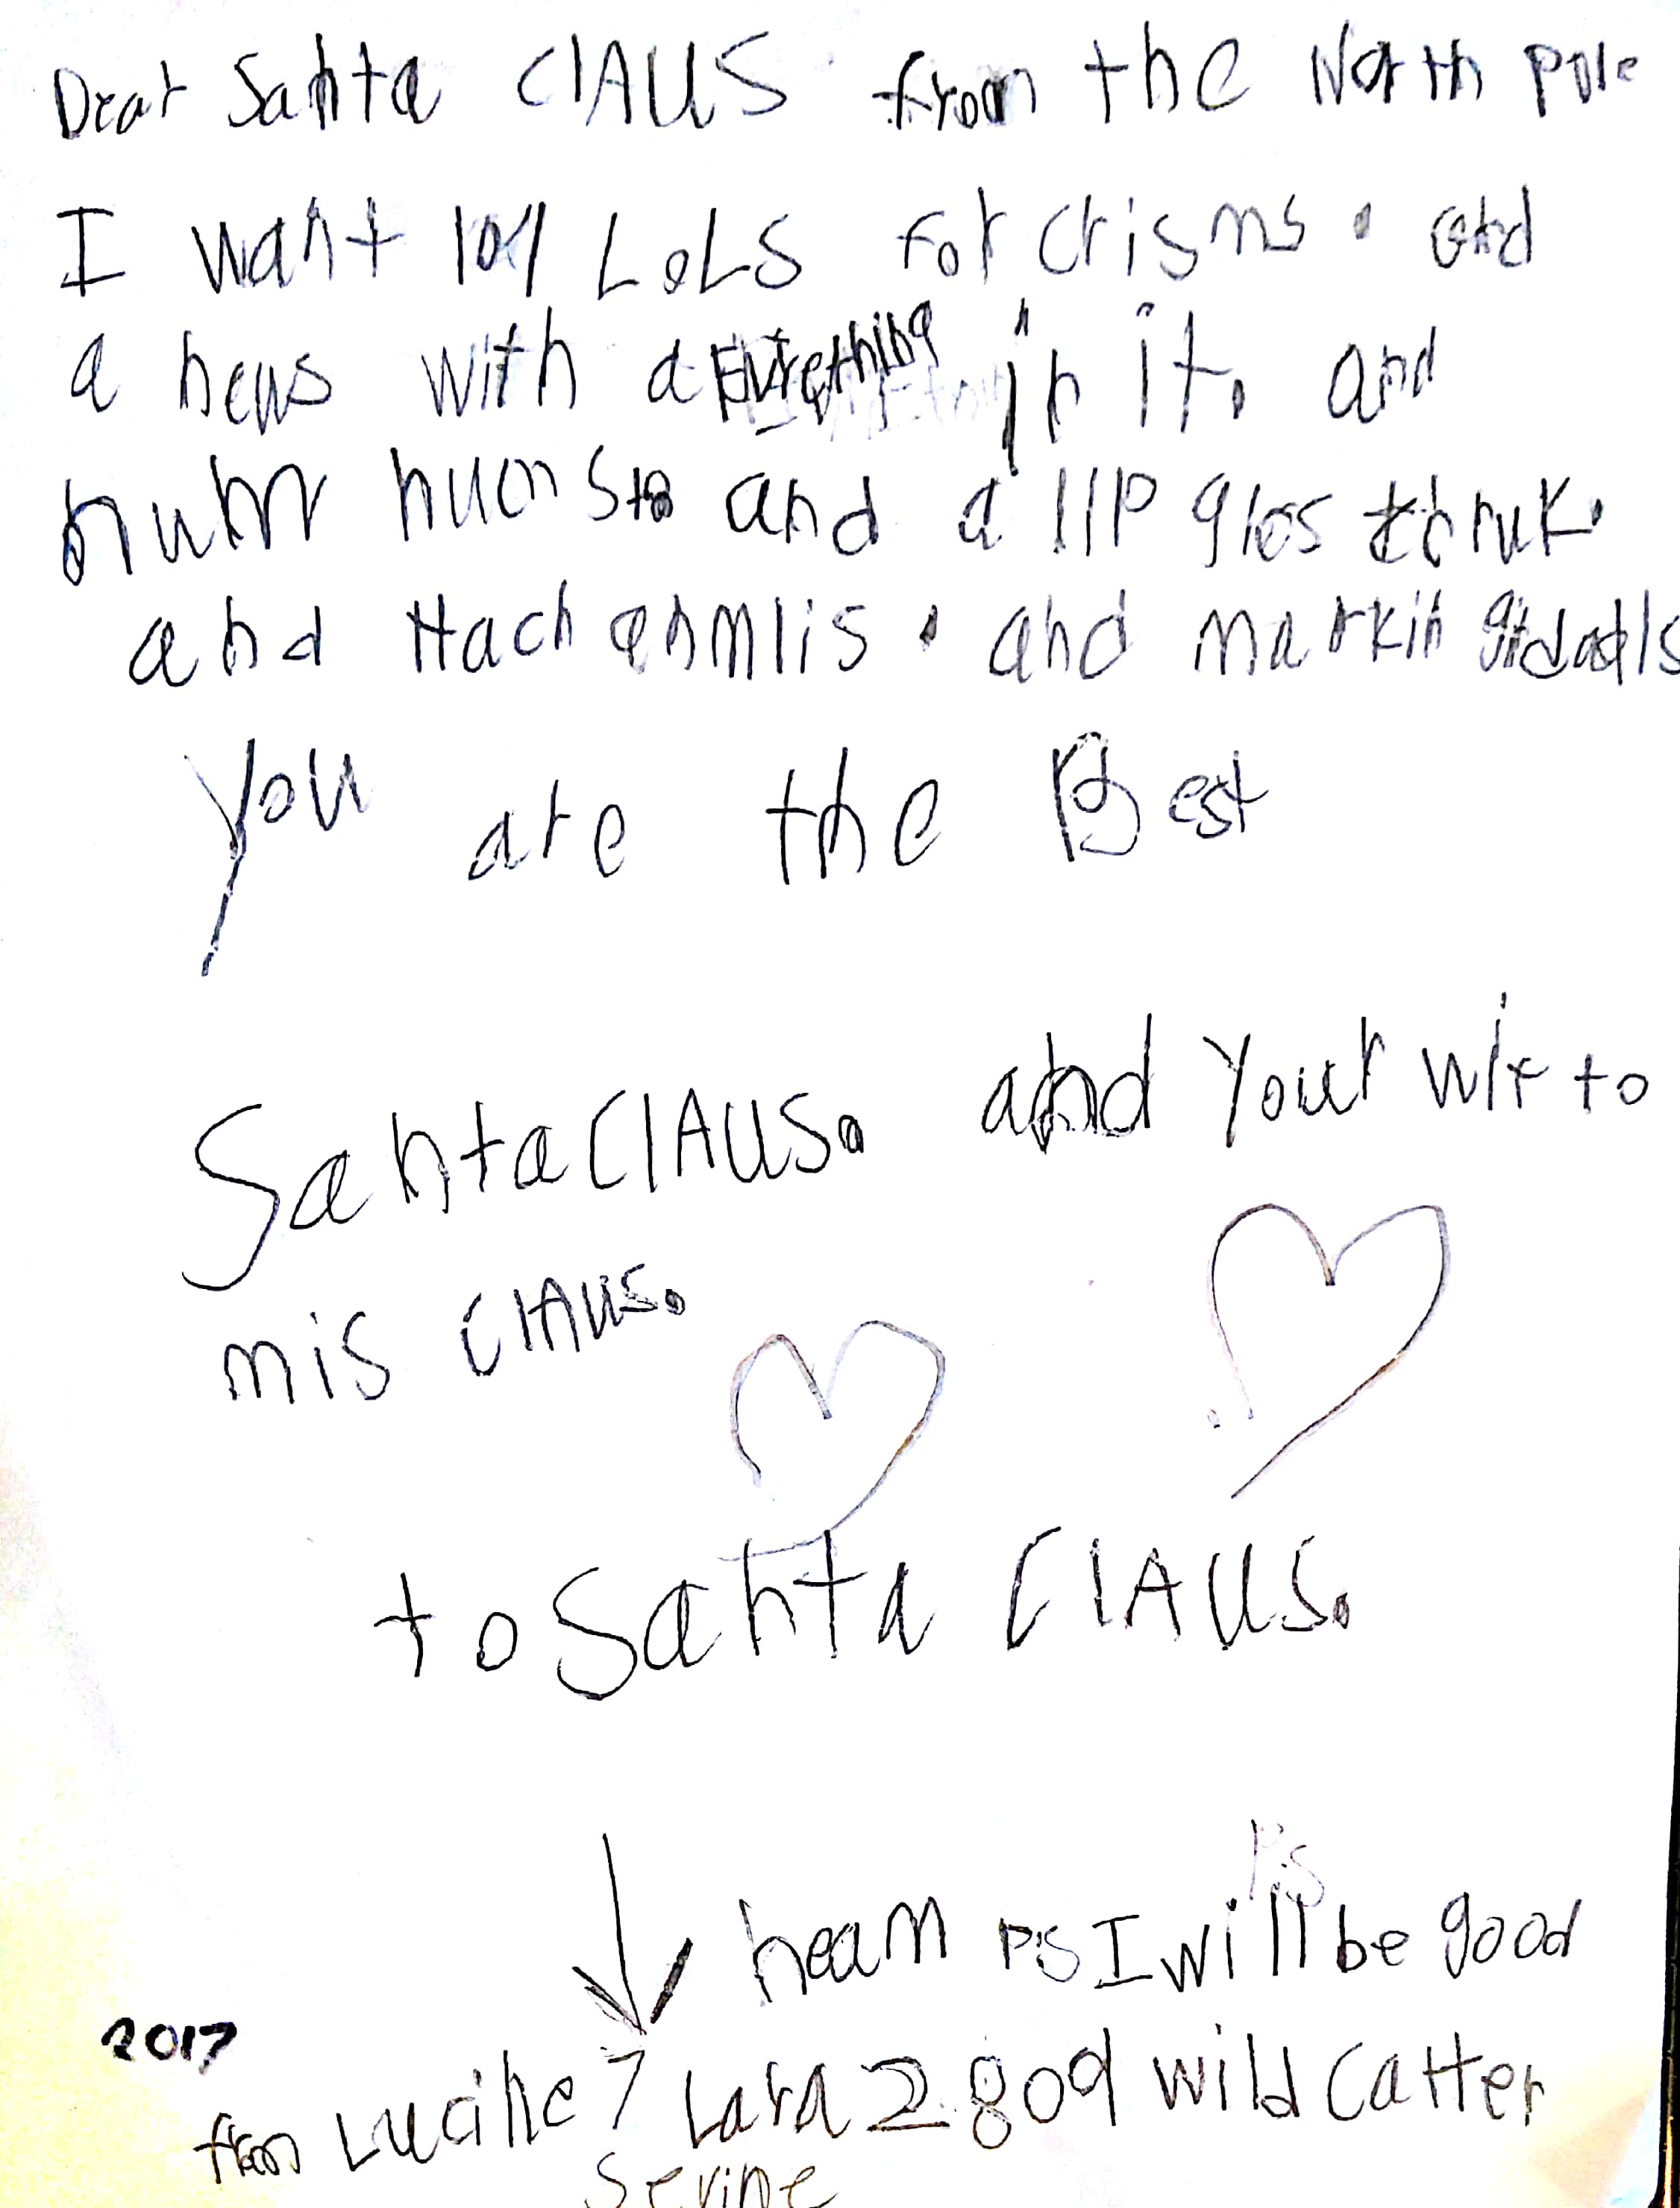 Dear Santa ClAUS from the North pole
I want 101 LoLS for crisms. and
a hews with a Evrething in it. and
huhr huons to and a lip glos thruk.
and Hach enmlis. and markin
you are the Best
Santa ClAUS. and Your wif to
mis ClAUS.
to Santa ClAUS.
P.S
heam P.S I will be good
2017
from Lucille 7 Lara 2 809 wild catter
Serine